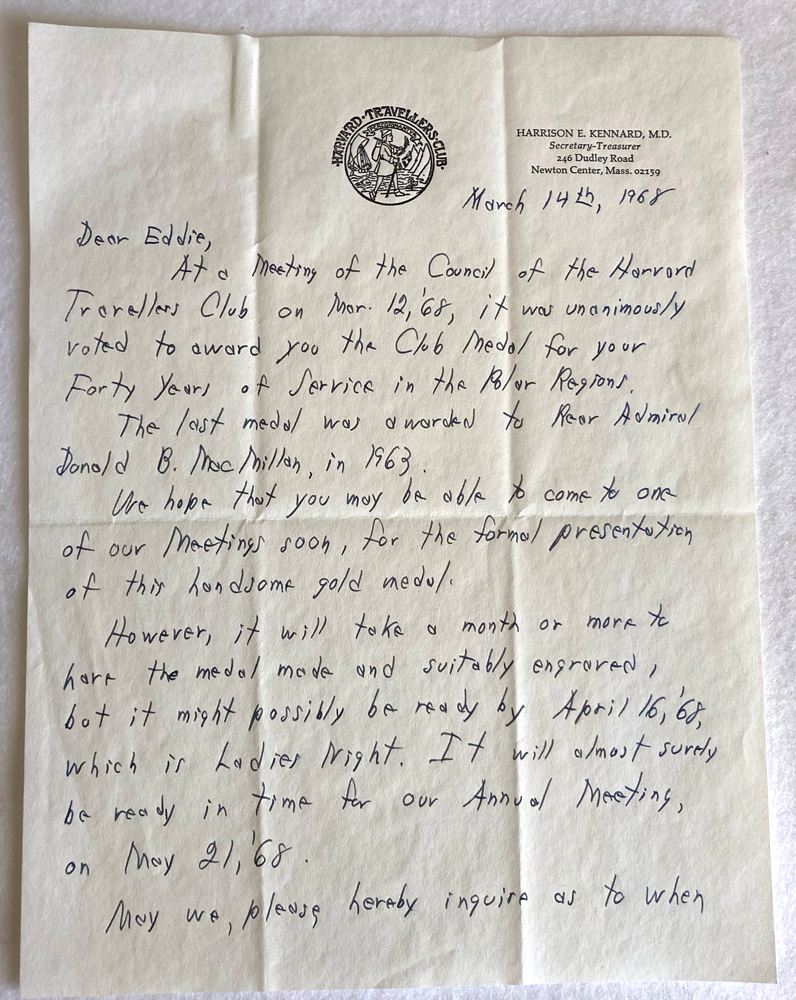 HARVARD·TRAVELLERS·CLUB·
HARRISON E. KENNARD, M.D.
Secretary-Treasurer
246 Dudley Road
Newton Center, Mass. 02159
March 14th, 1968
Dear Eddie,
At a Meeting of the Council of the Harvard
Travellers Club on Mar. 12, '68, it was unanimously
voted to award you the Club Medal for your
Forty Years of Service in the Polar Regions.
The last medal was awarded to Rear Admiral
Donald B. MacMillan, in 1963.
We hope that you may be able to come to one
of our Meetings soon, for the formal presentation
of this handsome gold medal.
However, it will take a month or more to
have the medal made and suitably engraved,
but it might possibly be ready by April 16, '68,
which is Ladies Night. It will almost surely
be ready in time for our Annual Meeting,
on May 21, '68.
May we, please, hereby inquire as to when